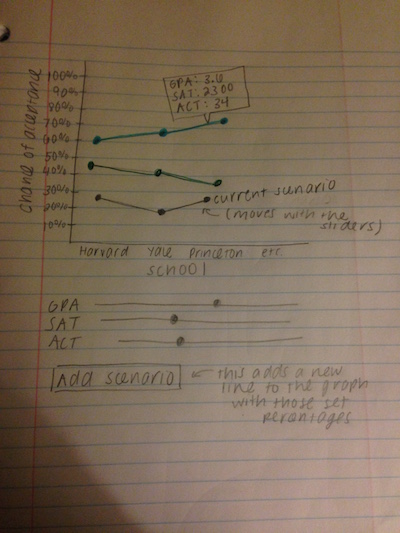 chance of acceptance
100%
90%
80%
70%
60%
50%
40%
30%
20%
10%
GPA: 3.6
SAT: 2300
ACT: 34
current scenario
(moves with the
sliders)
Harvard Yale Princeton etc.
school
GPA
SAT
ACT
Add scenario
this adds a new
line to the graph
with those set
percentages